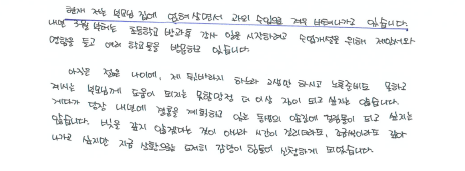 현재 저는 부모님 집에 얹혀살면서 과외 수업을 겨우 버텨나가고 있습니다.
내년 3월 부터는 초등학교 방과후 강사 일을 시작하려고 수업개설을 위해 제안서와
명함을 들고 여러 학교들을 방문하고 있습니다.
아직은 젊은 나이에, 제 뒷바라지 하느라 고생만 하시고 노후준비도 못하고
계시는 부모님께 도움이 되지는 못할망정 더 이상 짐이 되고 싶지는 않습니다.
게다가 당장 내년에 결혼을 계획하고 있는 동생의 앞길에 걸림돌이 되고 싶지는
않습니다. 빚을 갚지 않겠다는 것이 아니라 시간이 걸리더라도, 조금씩이라도 갚아
나가고 싶지만 지금 상황으로는 도저히 감당이 힘들어 신청하게 되었습니다.